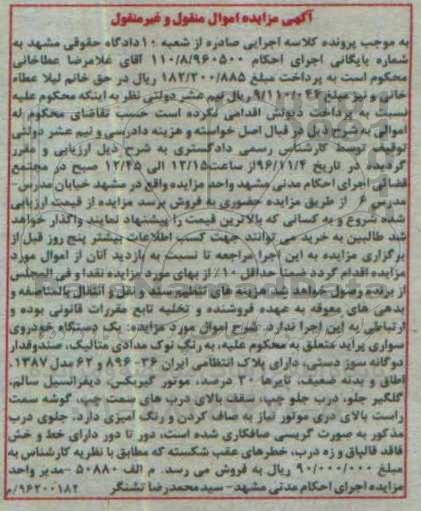 آگهی مزایده اموال منقول و غیرمنقول
به موجب پرونده کلاسه اجرایی صادره از شعبه ۱۰دادگاه حقوقی مشهد به
شماره بایگانی اجرای احکام ۱۱۰/۸/۹۶۰۵۰۰ آقای غلامرضا عطاخانی
محکوم است به پرداخت مبلغ ۱۸۲/۲۰۰/۸۸۵ ریال در حق خانم لیلا عطاء
خانی و نیز مبلغ ۹/۱۱۰/۰۴۴ ریال نیم عشر دولتی نظر به اینکه محکوم علیه
نسبت به پرداخت دیونش اقدامی نکرده است حسب تقاضای محکوم له
اموالی به شرح ذیل در قبال اصل خواسته و هزینه دادرسی و نیم عشر دولتی
توقیف توسط کارشناس رسمی دادگستری به شرح ذیل ارزیابی و مقرر
گردید، در تاریخ ۹۶/۱۱/۴از ساعت۱۲/۱۵ الی ۱۲/۴۵ صبح در مجتمع
قضائی اجرای احکام مدنی مشهد واحد مزایده واقع در مشهد خیابان مدرس -
مدرس ۶ از طریق مزایده حضوری به فروش برسد مزایده از قیمت ارزیابی
شده شروع و به کسانی که بالاترین قیمت را پیشنهاد نمایند واگذار خواهد
شد طالبین به خرید می توانند جهت کسب اطلاعات بیشتر پنج روز قبل از
برگزاری مزایده به این اجرا مراجعه تا نسبت به بازدید آنان از اموال مورد
مزایده اقدام گردد ضمناً حداقل ۱۰٪ از بهای مورد مزایده نقدا و فی المجلس
از برنده وصول خواهد شد، هزینه های تنظیم سند و نقل و انتقال بالمناصفه و
بدهی های معوقه به عهده فروشنده و تخلیه تابع مقررات قانونی بوده و
ارتباطی به این اجرا ندارد. شرح اموال مورد مزایده: یک دستگاه خودروی
سواری پراید متعلق به محکوم علیه، به رنگ نوک مدادی متالیک، صندوقدار
دوگانه سوز دستی، دارای پلاک انتظامی ایران ۳۶- ۸۹۶ و ۶۲ مدل ۱۳۸۷،
اطاق و بدنه ضعیف، تایرها ۳۰ درصد، موتور گیربکس، دیفرانسیل سالم،
گلگیر جلو، درب جلو چپ، سقف بالای درب های سمت چپ، گوشه سمت
راست بالای دری موتور نیاز به صاف کردن و رنگ آمیزی دارد، جلوی درب
مذکور به صورت گریسی صافکاری شده است، دور تا دور دارای خط و خش
فاقد قالپاق و زه درب، خطرهای عقب شکسته که مطابق با نظریه کارشناس به
مبلغ ۹۰/۰۰۰/۰۰۰ ریال به فروش می رسد. م الف ۵۰۸۸۰ -مدیر واحد
مزایده اجرای احکام مدنی مشهد- سیدمحمدرضا تشتگر ۹۶۲۰۰۱۸۲/م